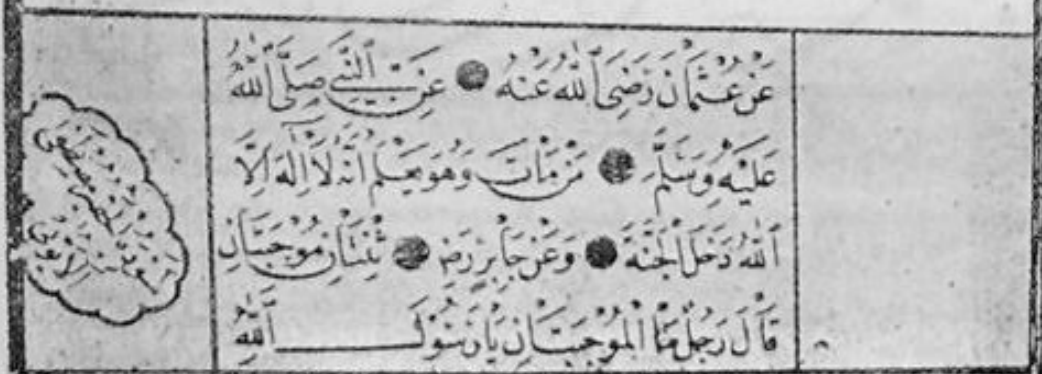 عَنْ عُثْمَانَ رَضِیَ ٱللّٰهُ عَنْهُ ● عَنِ ٱلنَّبِیِّ صَلَّی ٱللّٰهُ
عَلَیْهِ وَسَلَّمَ ● مَنْ مَاتَ وَهُوَ یَعْلَمُ اَنَّهُ لَا اِلٰهَ اِلَّا
ٱللّٰهُ دَخَلَ ٱلْجَنَّةَ ● وَعَنْ جَابِرٍ رَضِ ● ثِنْتَانِ مُوْجِبَتَانِ
قَالَ رَجُلٌ مَا ٱلْمُوْجِبَتَانِ یَا رَسُوْلَ ٱللّٰهِ